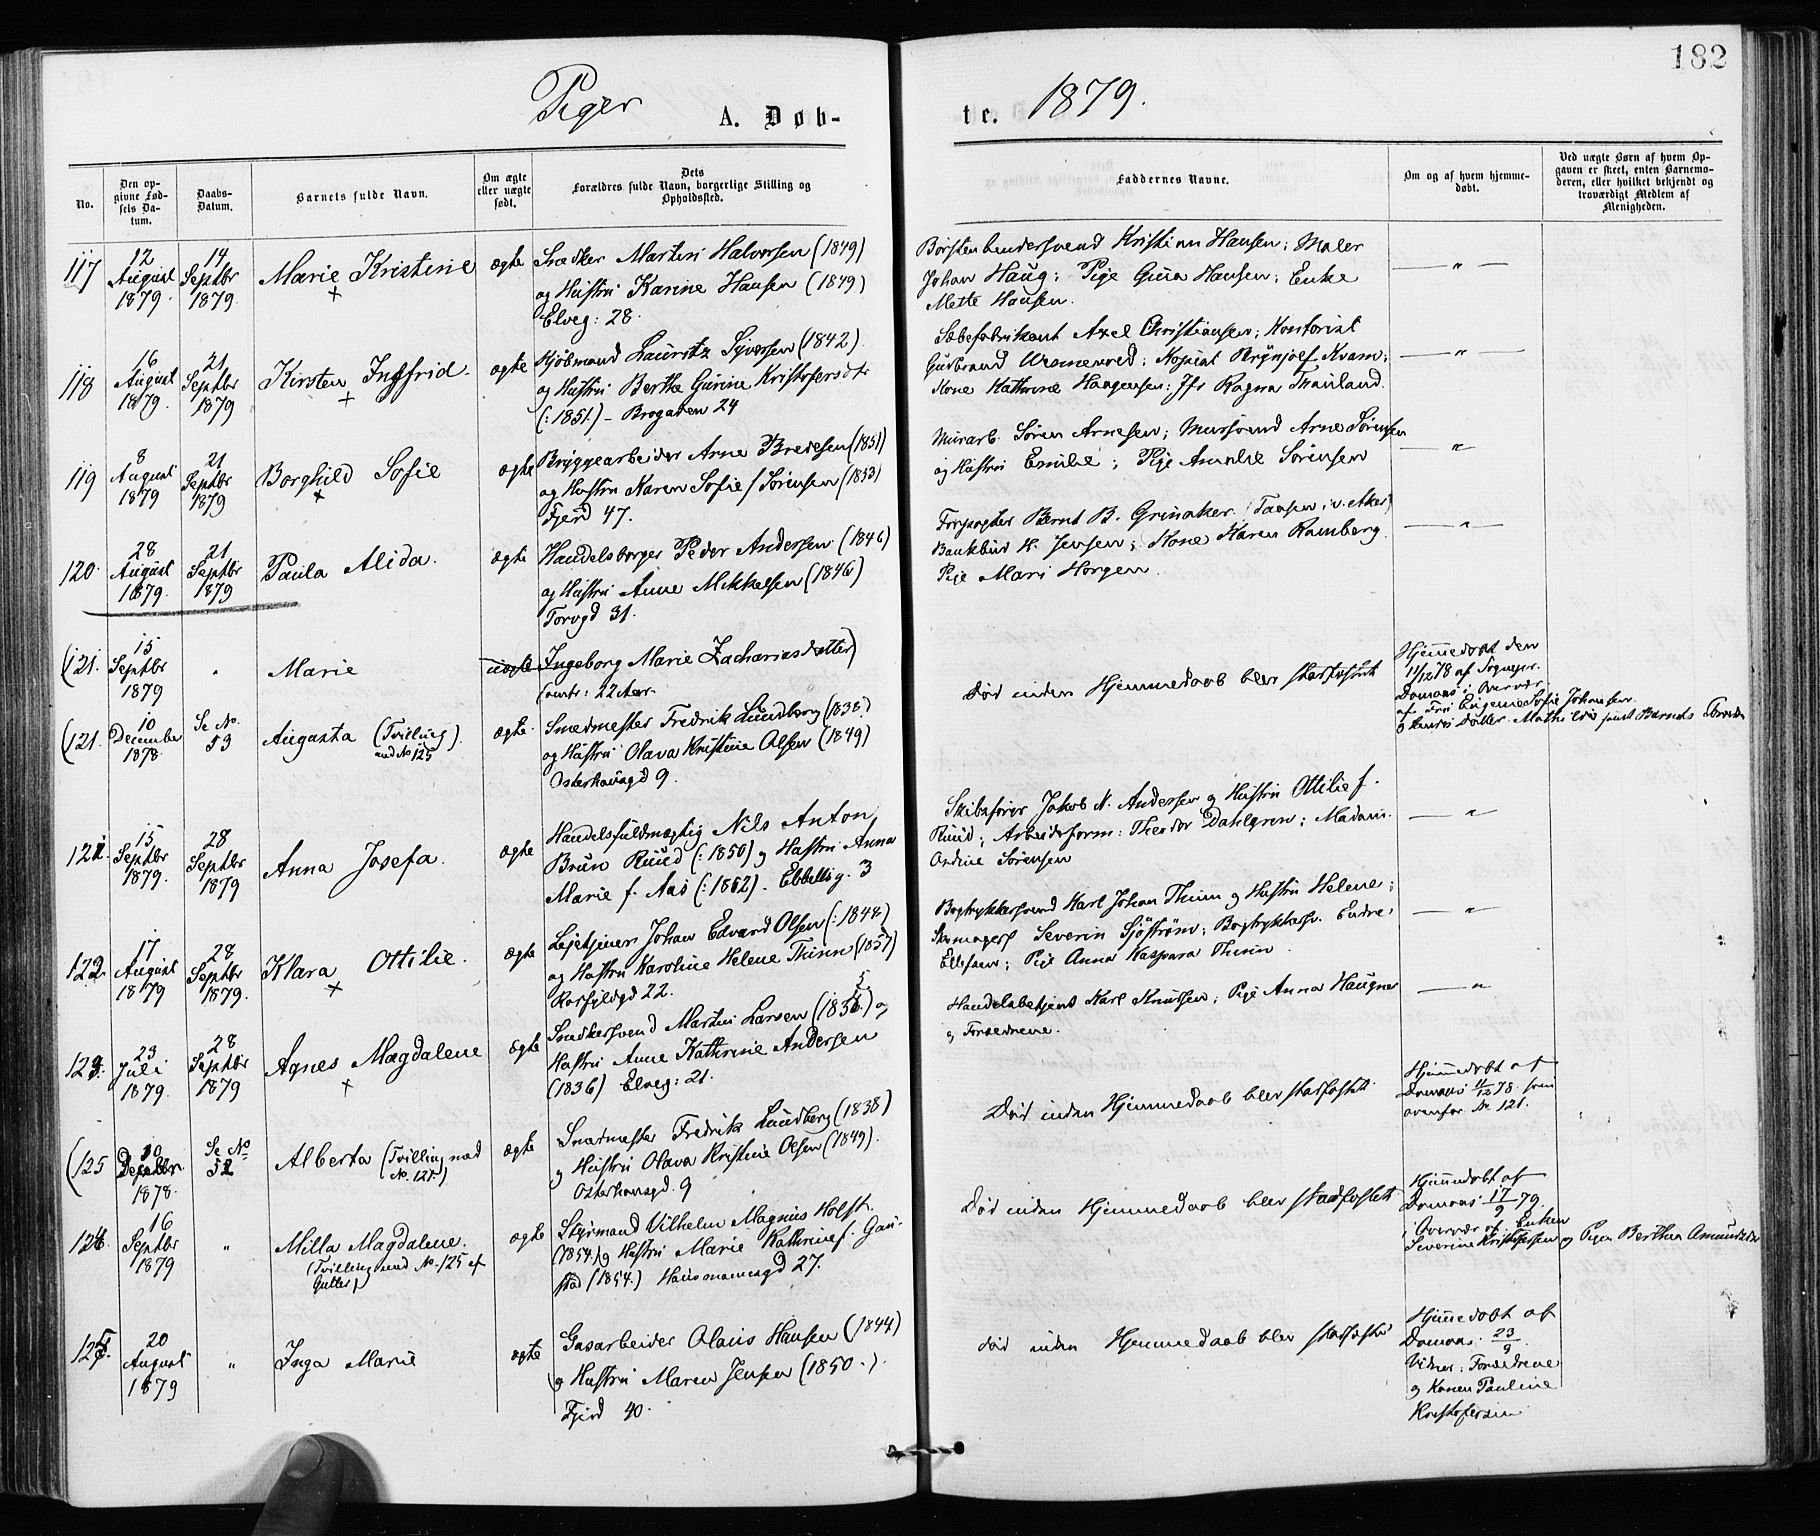 182
Piger A. Døb-
te. 1879.
No.
Den op-
givne Fød-
sels Da-
tum.
Daabs-
Datum.
Barnets fulde Navn.
Om ægte
eller uægte
født.
Dets
Forældres fulde Navn, borgerlige Stilling og
Opholdssted.
Faddernes Navne.
Om og af hvem hjemme-
døbt.
Ved uægte Børn af hvem Op-
gaven er skeet, enten Barnemo-
deren, eller hvilket bekjendt og
troværdigt Medlem af
Menigheden.
117
12
August
1879.
14
Septbr
1879.
Marie Kristine
+
ægte
Snedker Martin Halvorsen (1849)
og Hustru Karine Hansen (1849)
Elveg: 28.
Børstenbindersvend Kristian Hansen; Maler
Johan Haug; Pige Gina Hansen; Enke
Mette Hansen.
— „ —
118
16
August
1879.
21
Septbr
1879
Kirsten Ingfrid.
+
ægte
Kjøbmand Lauritz Syversen (1842).
og Hustru Berthe Gurine Kristofersdtr
(:1851.) – Brogaden 24
Sæbefabrikant Axel Christiansen; Kontorist
Gudbrand; Kopist Brynjolf Kvam;
Kone Kathrine Haagensen; Jfr Ragna Trauland.
— „ —
119
8
August
1879
21
Septbr
1879
Borghild Sofie
+
ægte
Bryggearbeider Arne Bredesen (1851)
og Hustru Karen Sofie f Sørensen (1853)
Fjerd 47.
Murarb. Søren Arnesen; Mursvend Arne Sørensen
og Hustru Emilie; Pige Amalie Sørensen
— „ —
120.
28
August
1879.
21
Septbr
1879
Paula Alida.
ægte
Handelsborger Peder Andersen (1846)
og Hustru Anne Mikkelsen (1846)
Torvgd 31.
Forpagter Bernt B. Grinaker (Taasen i v. Aker)
Bankbud K. Jensen; Kone Karen Ramberg.
Pige Mari Horgen.
— „ —
(121.
15
Septbr
1879
„
Marie
uægte
Ingeborg Marie Zachariasdatter)
(omtr: 22 Aar.
(121.
10
December
1878
Se No.
53
Augusta (Tvilling
med No 125)
ægte.
Smedmester Fredrik Lundberg (1838.)
og Hustru Olava Kristine Olsen (1849)
Osterhausgd 9.
Død inden Hjemmedaab blev stadfæstet
Hjemmedøbt den
11/12 78 af Sognepr.
Domaas i Overvær
af Fru Eugenie Sofie Johansen
og hendes Datter Mathilde samt Barnets Forældre
122
15
Septbr
1879.
28
Septbr
1879
Anna Josefa.
ægte
Handelsfuldmægtig Nils Anton
Brun Ruud (:1850) og Hustru Anna
Marie f. Aas (:1852). Ebbellsg. 3
Skibsfører Jakob N. Andersen og Hustru Ottilie f.
Ruud; Arbeidsform: Theodor Dahlgren; Madam
Andine Sørensen
— „ —
122.
17
August
1879
28
Septbr
1879.
Klara Ottilie.
+
ægte
Leietjener Johan Edvard Olsen (:1848)
og Hustru Karoline Helene Thinn (1857)
Korsfjeldgd 22.
Bogtrykkersvend Karl Johan Thinn og Hustru Helene;
Skomagers Severin Sjöström; Bogtrykkersv. Endre
Ellefsen; Pige Anna Kaspara Thinn
— „ —
123.
23
Juli
1879.
28
Septbr
1879
Agnes Magdalene
+
ægte
Snedkersvend Martin Larsen (1835) og
Hustru Anne Kathrine Andersen
(1836) Elveg: 21.
Handelsbetjent Karl Knudsen; Pige Anna Haugner
og Forældrene.
— „
(125
10
Decbr.
1878.
Se No
52
Alberta (Tvilling med
No. 121.)
ægte
Smedmester Fredrik Lundberg (1838)
og Hustru Olava Kristine Olsen (1849).
Osterhausgd. 9
Død inden Hjemmedaab blev stadfæstet.
Hjemmedøbt af
Domaas 11/12 78. som
ovenfor No. 121.
124.
16
Septbr
1879
„
Milla Magdalene.
(Tvilling med No. 125 af
Gutter)
ægte
Styrmand Vilhelm Magnus Holst.
(1854.) og Hustru Marie Kathrine f. Gau-
stad (1854.) Hausmannsgd 27.
Død inden Hjemmedaab blev stadfæstet.
Hjemmedøbt af
Domaas 17/9 79.
i Overvær af Enken
Severine Kristofersen og Pigen Berthea Amundsdtr
125.
20
August
1879
„
Inga Marie
ægte
Gasarbeider Olaus Hansen (1844)
og Hustru Maren Jensen (1850.).
Fjerd 40.
død inden Hjemmedaab blev stadfæstet
Hjemmedøbt af
Domaas. 23/9
Vidner: Forældrene
og Konen Pauline
Kristofersen